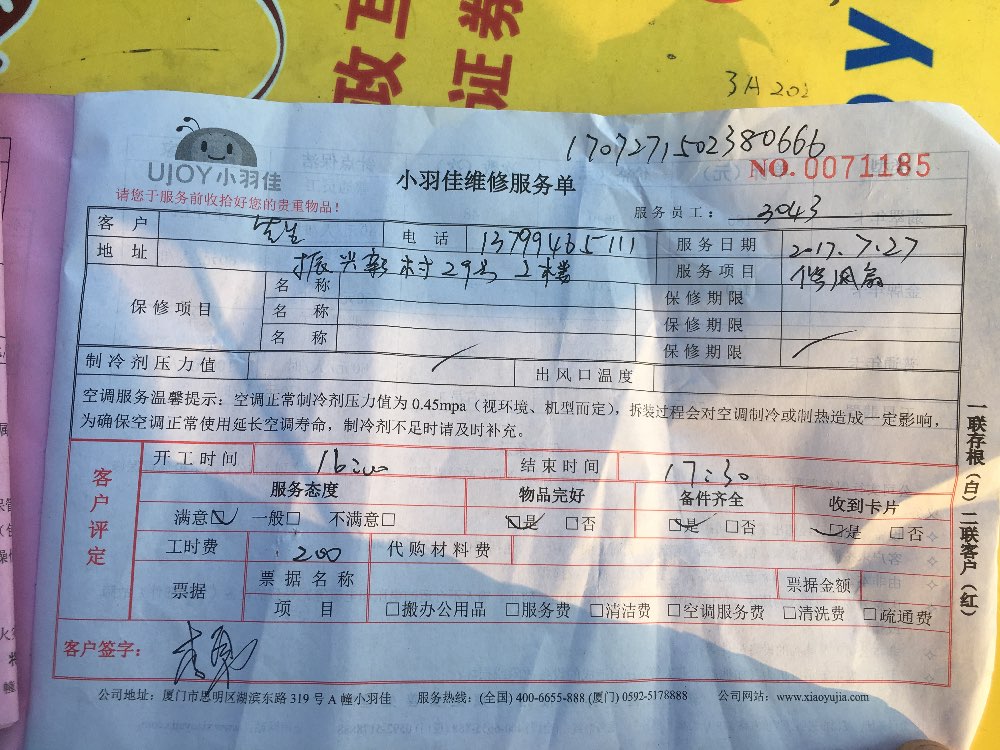 政互
证券
3A202
1707271502380666
UJOY小羽佳
小羽佳维修服务单
NO. 0071185
请您于服务前收拾好您的贵重物品！
服务员工： 3043
客户 先生 电话 13799465111 服务日期 2017.7.27
地址 振兴新村29号 服务项目 修风扇
保修项目 名称 保修期限
名称 保修期限
名称 保修期限
制冷剂压力值 出风口温度
空调服务温馨提示：空调正常制冷剂压力值为0.45mpa（视环境、机型而定），拆装过程会对空调制冷或制热造成一定影响，
为确保空调正常使用延长空调寿命，制冷剂不足时请及时补充。
客户评定
开工时间 16:00 结束时间 17:30
服务态度 物品完好 备件齐全 收到卡片
满意☑ 一般□ 不满意□ ☑是 □否 ☑是 □否 ☑是 □否
工时费 200 代购材料费
票据 票据名称 票据金额
项目 □搬办公用品 □服务费 □清洁费 □空调服务费 □清洗费 □疏通费
客户签字：
公司地址：厦门市思明区湖滨东路319号A幢小羽佳 服务热线：(全国) 400-6655-888 (厦门) 0592-5178888 公司网站：www.xiaoyujia.com
一联存根（白）二联客户（红）